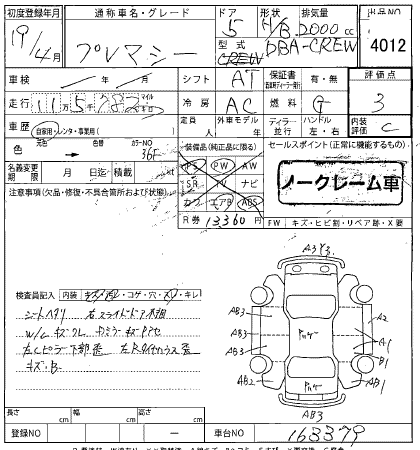 初度登録年月 通称車名・グレード ドア 形状 排気量 出品NO
19年/4月 プレマシー 5 H/B 2000cc
型式 CREW DBA-CREW 4012
車検 年 月 シフト AT 保証書 有・無 評価点
走行 11万5千782 マイル キロ 冷房 AC 燃料 G 3
車歴 自家用・レンタ・事業用( ) 定員 人 外車モデル 年 ディーラー 並行 ハンドル 左・右 内装評価 C
色 元色 → 色替 カラーNO 36F 装備品(純正品に限る) セールスポイント(正常に機能するもの)
名義変更期限 月 日迄 積載 kg PS PW AW
注意事項(欠品・修復・不具合箇所および状態) SR TV ナビ ノークレーム車
カワ エアB ABS
R券 13360円 FW キズ・ヒビ割・リペア跡・X要
検査員記入 内装 キズ・汚レ・コゲ・穴・スレ・キレ
シートヘタリ 右スライドドア
W/Cキズ
左Cピラー下部 左Rタイヤハウス
キズ・B・
A3Y3
AB3 A2
AB3 A1
AB3 B1
AB2 AB1
AB3
長さ cm 幅 cm 高さ cm
登録NO ー 車台NO 163379